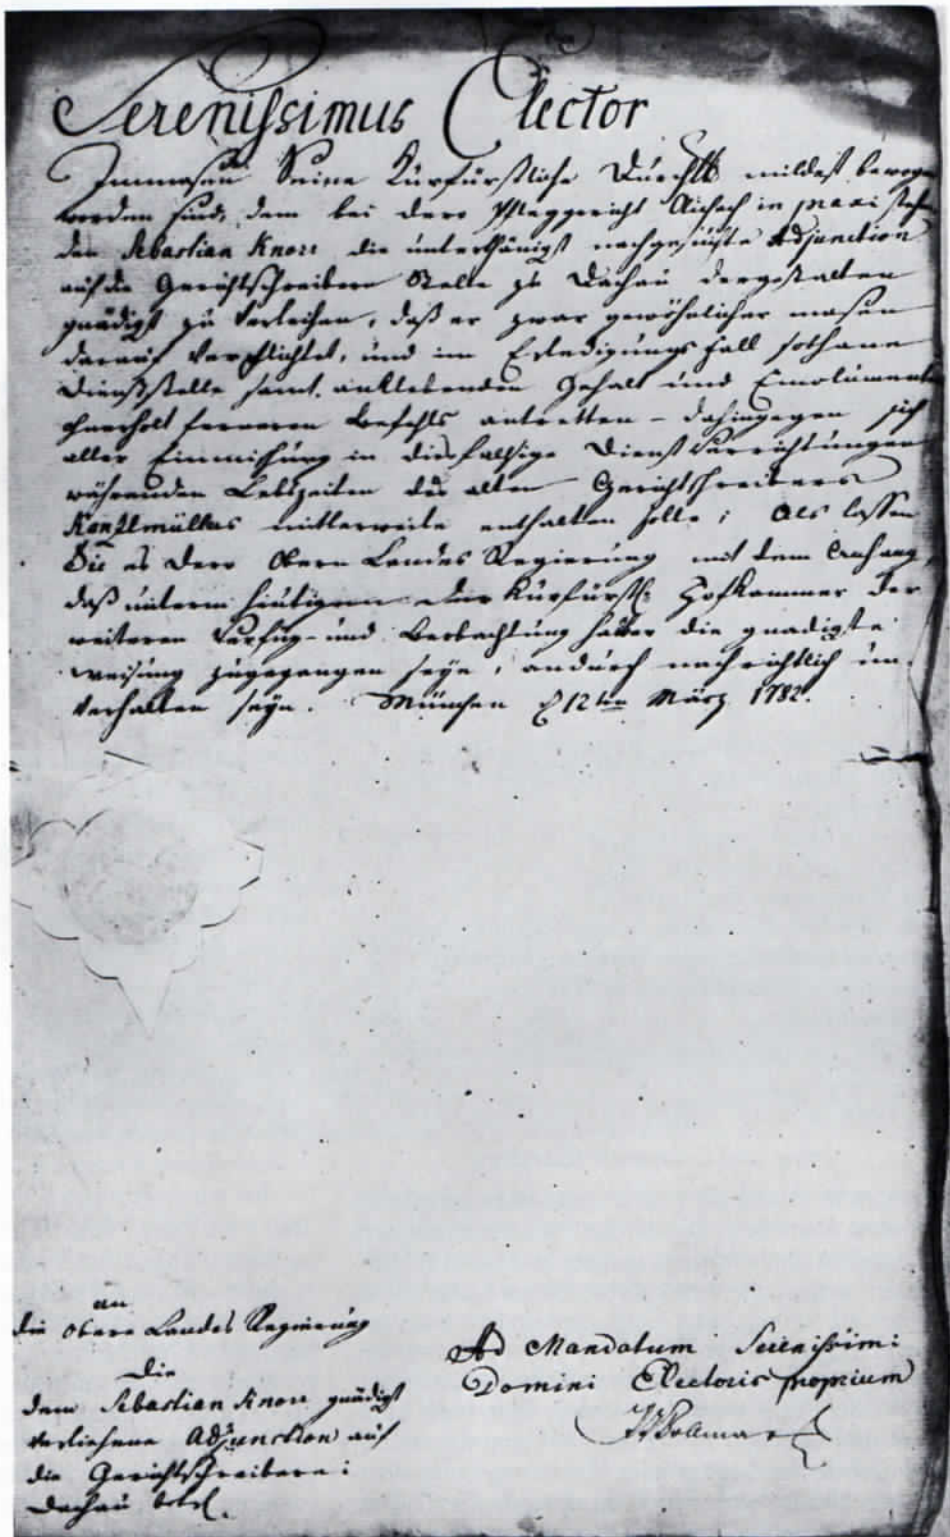 Serenissimus Elector
Inmasen Seine Kurfürstliche Durchlt mildest bewogen
worden sind, dem bei dero Pfleggericht Aichach in praxi stehen
den Sebastian Knorr die unterthänigst nachgesuchte Adjunction
auf die Gerichtschreibers Stelle zu Dachau dergestalten
gnädigst zu verleihen, daß er zwar gewöhnlicher masen
darauf verpflichtet, und im Erledigungs fall sothane
Dienststelle samt anklebenden Gehalt und Emolumenten
ferneren Befehls antretten – dahingegen sich
aller Einmischung in diesfalsige Dienst Verrichtungen
währenden Lebszeiten des alten Gerichtschreibers
mittlerweile enthalten solle; Als lassen
Sie es dero Obern Landes Regierung mit dem Anhang,
daß unterm heutigen der Kurfürstl: Hofkammer der
weiteren Verfüg- und Beobachtung halber die gnädigste
weisung zugegangen seye, andurch nachrichtlich un
verhalten seyn. München d 12ten März 1782.
an
die Obere Landes Regierung
Die
dem Sebastian Knorr gnädigst
verliehene Adjunction auf
die Gerichtschreiberei:
Dachau betrl.
Ad Mandatum Serenissimi
Domini Electoris proprium